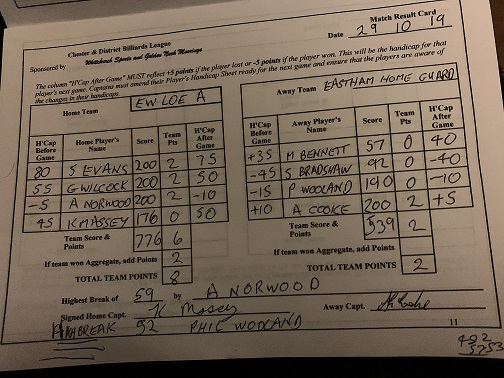 Match Result Card
Chester & District Billiards League
Date 29 10 19
Sponsored by Whitchurch Sports and Golden Nook Moorings
The column "H'Cap After Game" MUST reflect +5 points if the player lost or -5 points if the player won. This will be the handicap for that
player's next game. Captains must amend their Player's Handicap Sheet ready for the next game and ensure that the players are aware of
the changes in their handicaps.
Home Team EWLOE A
Away Team EASTHAM HOME GUARD
H'Cap Before Game Home Player's Name Score Team Pts H'Cap After Game
80 S EVANS 200 2 75
55 G WILCOCK 200 2 50
-5 A NORWOOD 200 2 -10
45 K MASSEY 176 0 50
Team Score & Points 776 6
If team won Aggregate, add Points 2
TOTAL TEAM POINTS 8
H'Cap Before Game Away Player's Name Score Team Pts H'Cap After Game
+35 M BENNETT 57 0 40
-45 S BRADSHAW 92 0 -40
-15 P WOOLAND 190 0 -10
+10 A COOKE 200 2 +5
Team Score & Points 539 2
If team won Aggregate, add Points
TOTAL TEAM POINTS 2
Highest Break of 59 by A NORWOOD
Signed Home Capt. K Massey Away Capt.
HIGHBREAK 52 PHIL WOOLAND
11